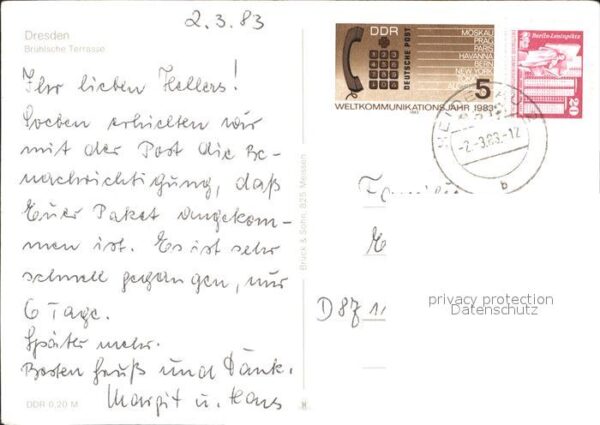 2.3.83
Dresden
Brühlsche Terrasse
Ihr lieben Hellers!
Soeben erhielten wir
mit der Post die Be-
nachrichtigung, daß
Euer Paket angekom-
men ist. Es ist sehr
schnell gegangen, nur
6 Tage.
Später mehr.
Besten Gruß und Dank.
Margit u. Hans
DDR 0,20 M
Brück & Sohn, 825 Meissen
DDR
DEUTSCHE POST
MOSKAU
PRAG
PARIS
HAVANNA
BERN
NEW YORK
5
WELTKOMMUNIKATIONSJAHR 1983
Berlin-Leninplatz
20
-2.-3.83.-12
b
D 87
privacy protection
Datenschutz